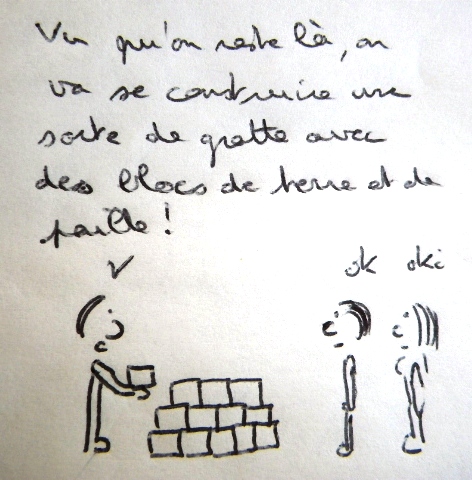 Vu qu'on reste là, on
va se construire une
sorte de grotte avec
des blocs de terre et de
paille !
ok oki